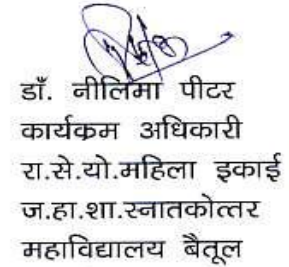 डॉ. नीलिमा पीटर
कार्यकम अधिकारी
रा.से.यो.महिला इकाई
ज.हा.शा.स्नातकोत्तर
महाविद्यालय बैतूल